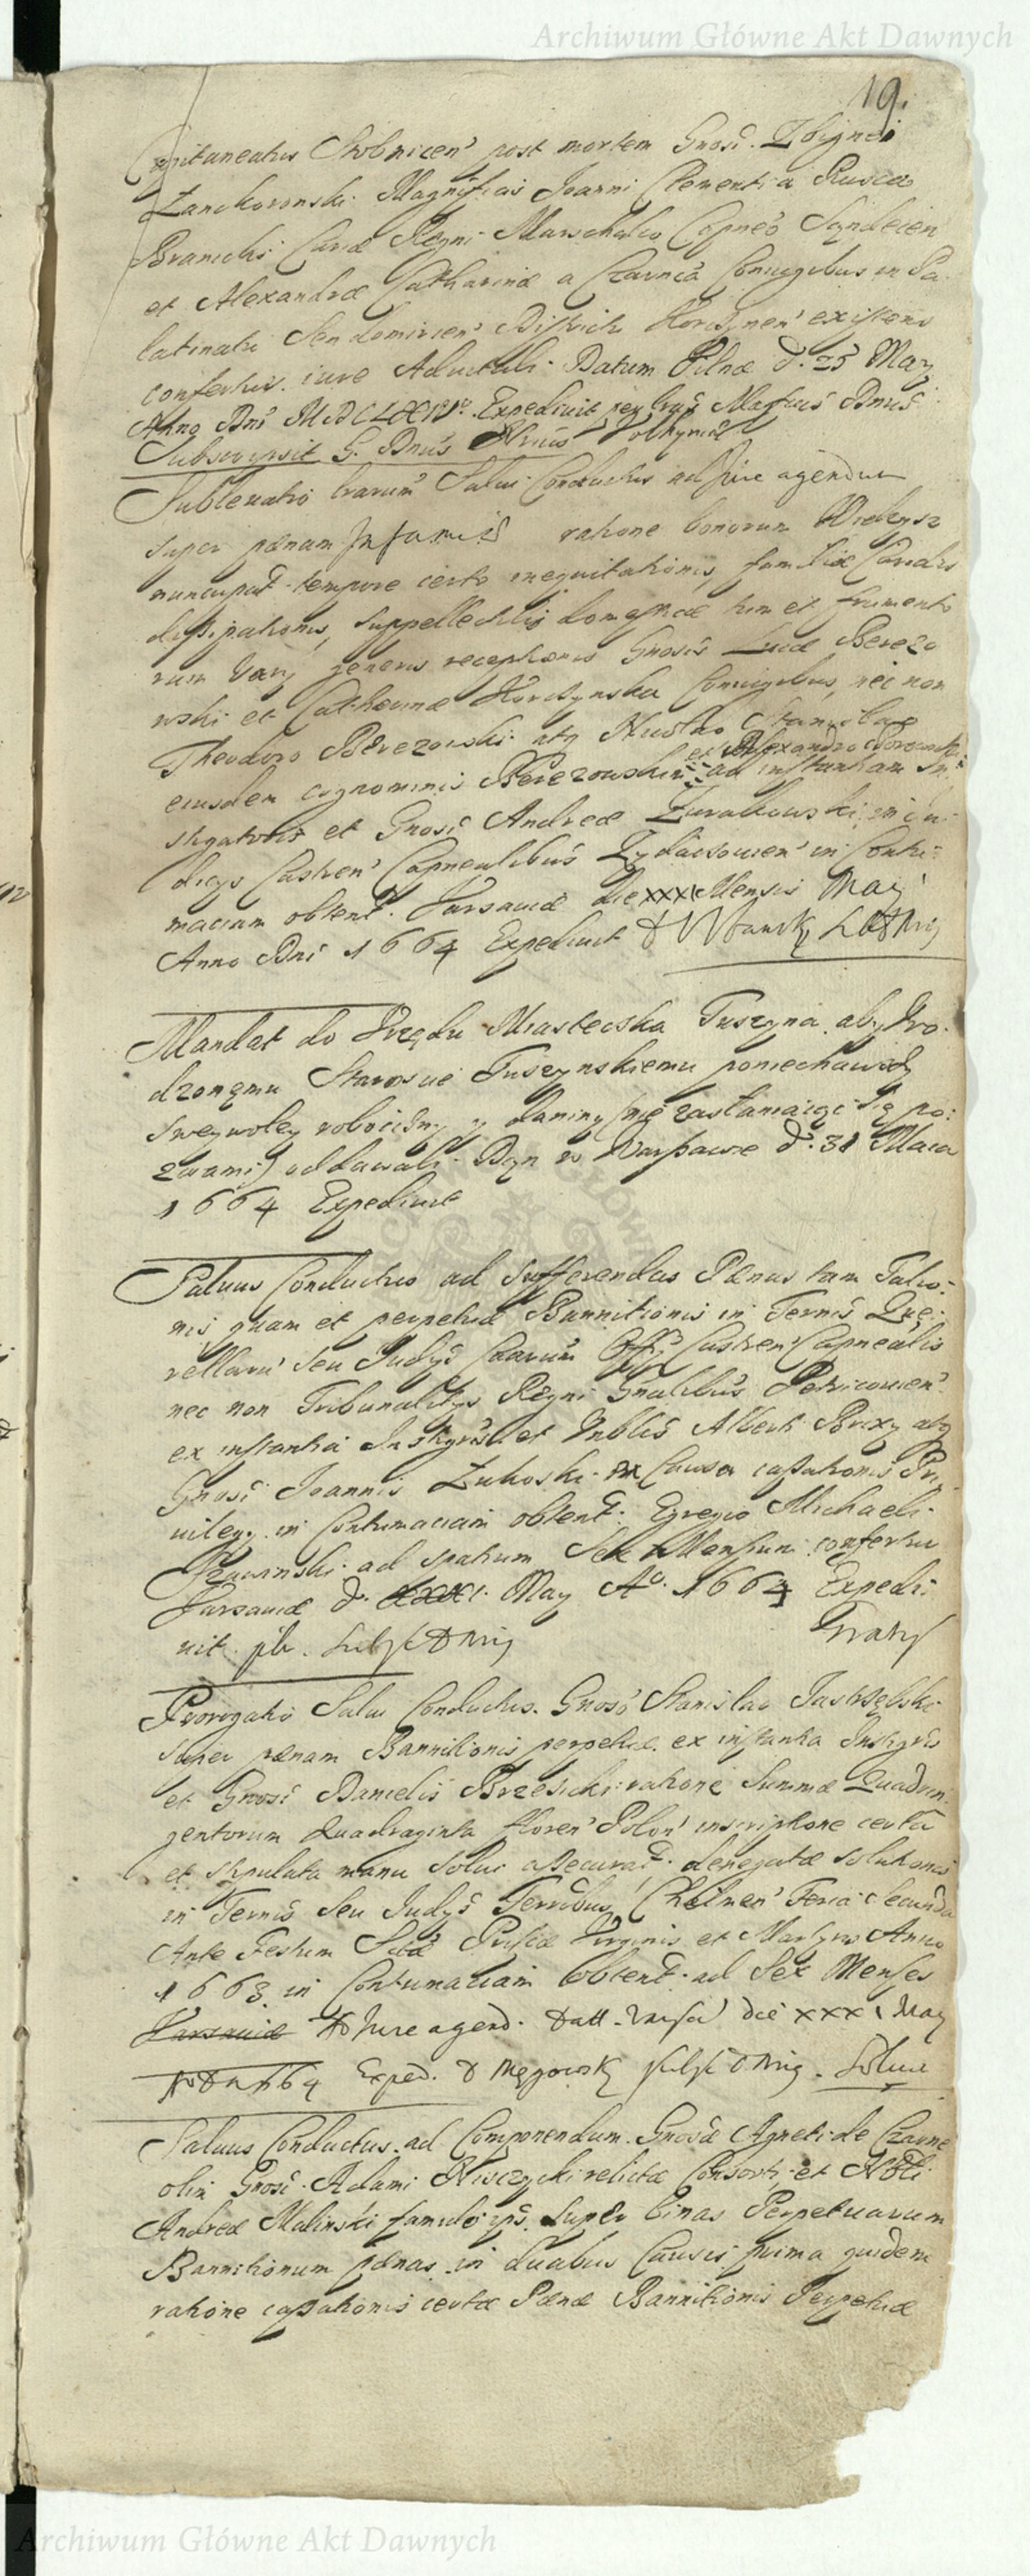 Archiwum Główne Akt Dawnych
19.
Capitaneatus Stobnicen' post mortem Gnosi. Zbignei
Lanckoronski. Magnificis Joanni Clementi a Rusca
Branicki Curæ Regni Marschalco Capneo Syndecien
et Alexandræ Catharinæ a Czarnca Coniugibus in Pa
latinatu Sendomirien' Districtu Korczynen' existens
confertur. iure Aduitali. Datum Pilnæ d. 25 May
Anno Dni MDCLXIV. Expediuit per Magcus Dnus
Subscripsit S. Dnus
Subleuatio Salui Conductus ad Jure agendum
super pænam Infamiæ ratione bonorum
nuncupat. tempore certo inequitationis, familiæ
dissipationis, suppellectilis domesticæ tum et frumento
rum Vary generis receptionis Gnosis Lucæ Berezo
wski et Catharinæ Korczynska Coniugibus, nec non
Theodoro Berezowski atq Stanislao
et Alexandro
eiusdem cognominis Berezowskim ad instantiam In
stigatoris et Gnosi Andreæ Zurakowski in Iu
dicys Castren' Capnealibus Zydaczouien' in Contu
maciam obtent. Varsauiæ die xxxi Mensis May
Anno Dni 1664 Expediuit
Mandat do Vrzędu Miasteczka Tuszyna. aby Vro.
dzonemu Staroscie Tuszynskiemu poniechawszy
sweywoley robocizny y daniny (nie zasłaniaiąc się po:
zwami) oddawali. Dan w Warszawie d. 31 Maia
1664 Expediuit
Saluus Conductus ad sufferendas Pænas tam Talio:
nis quam et perpetuæ Bannitionis in Termis Que:
rellaru' seu Iudys Causarum Offi Castren' Capnealis
nec non Tribunalitys Regni Gnalibus Petricouien'
ex instantia Instigris et Nobilis Alberti Brixy atq
Gnosi Joannis Zukoski in Causa cassationis Pri
uilegy. in Contumaciam obtent. Egregio Michaeli
ad spatium Sex Mensium confertur
Varsauiæ d. xxxi. May Ao. 1664 Expedi
uit Gratis
Prorogatio Salui Conductus. Gnoso Stanislao Jastrzębski
super pænam Bannitionis perpetuæ. ex instantia Instigris
et Gnosi Danielis Brzesicki ratione Summæ Quadrin
gentorum Quadraginta floren' Polon' inscriptione certa
et stipulata manu solui assecurat. denegatæ solutionis
in Termis seu Iudys Terribus Chelmen' Feria Secunda
Ante Festum Stæ Priscæ Virginis et Martyris Anno
1663 in Contumaciam obtent. ad Sex Menses
Varsauiæ Jure agend. datt. die xxxi May
1664 Exped.
Saluus Conductus. ad Componendum. Gnosæ Agneti de Czarne
olim Gnosi. Adami relictæ Consorti, et Nobli
Andreæ Malinski famulo ips. super binas Perpetuarum
Bannitionum pænas in duabus Causis prima quidem
ratione cassationis certæ Pænæ Bannitionis Perpetuæ
Archiwum Główne Akt Dawnych